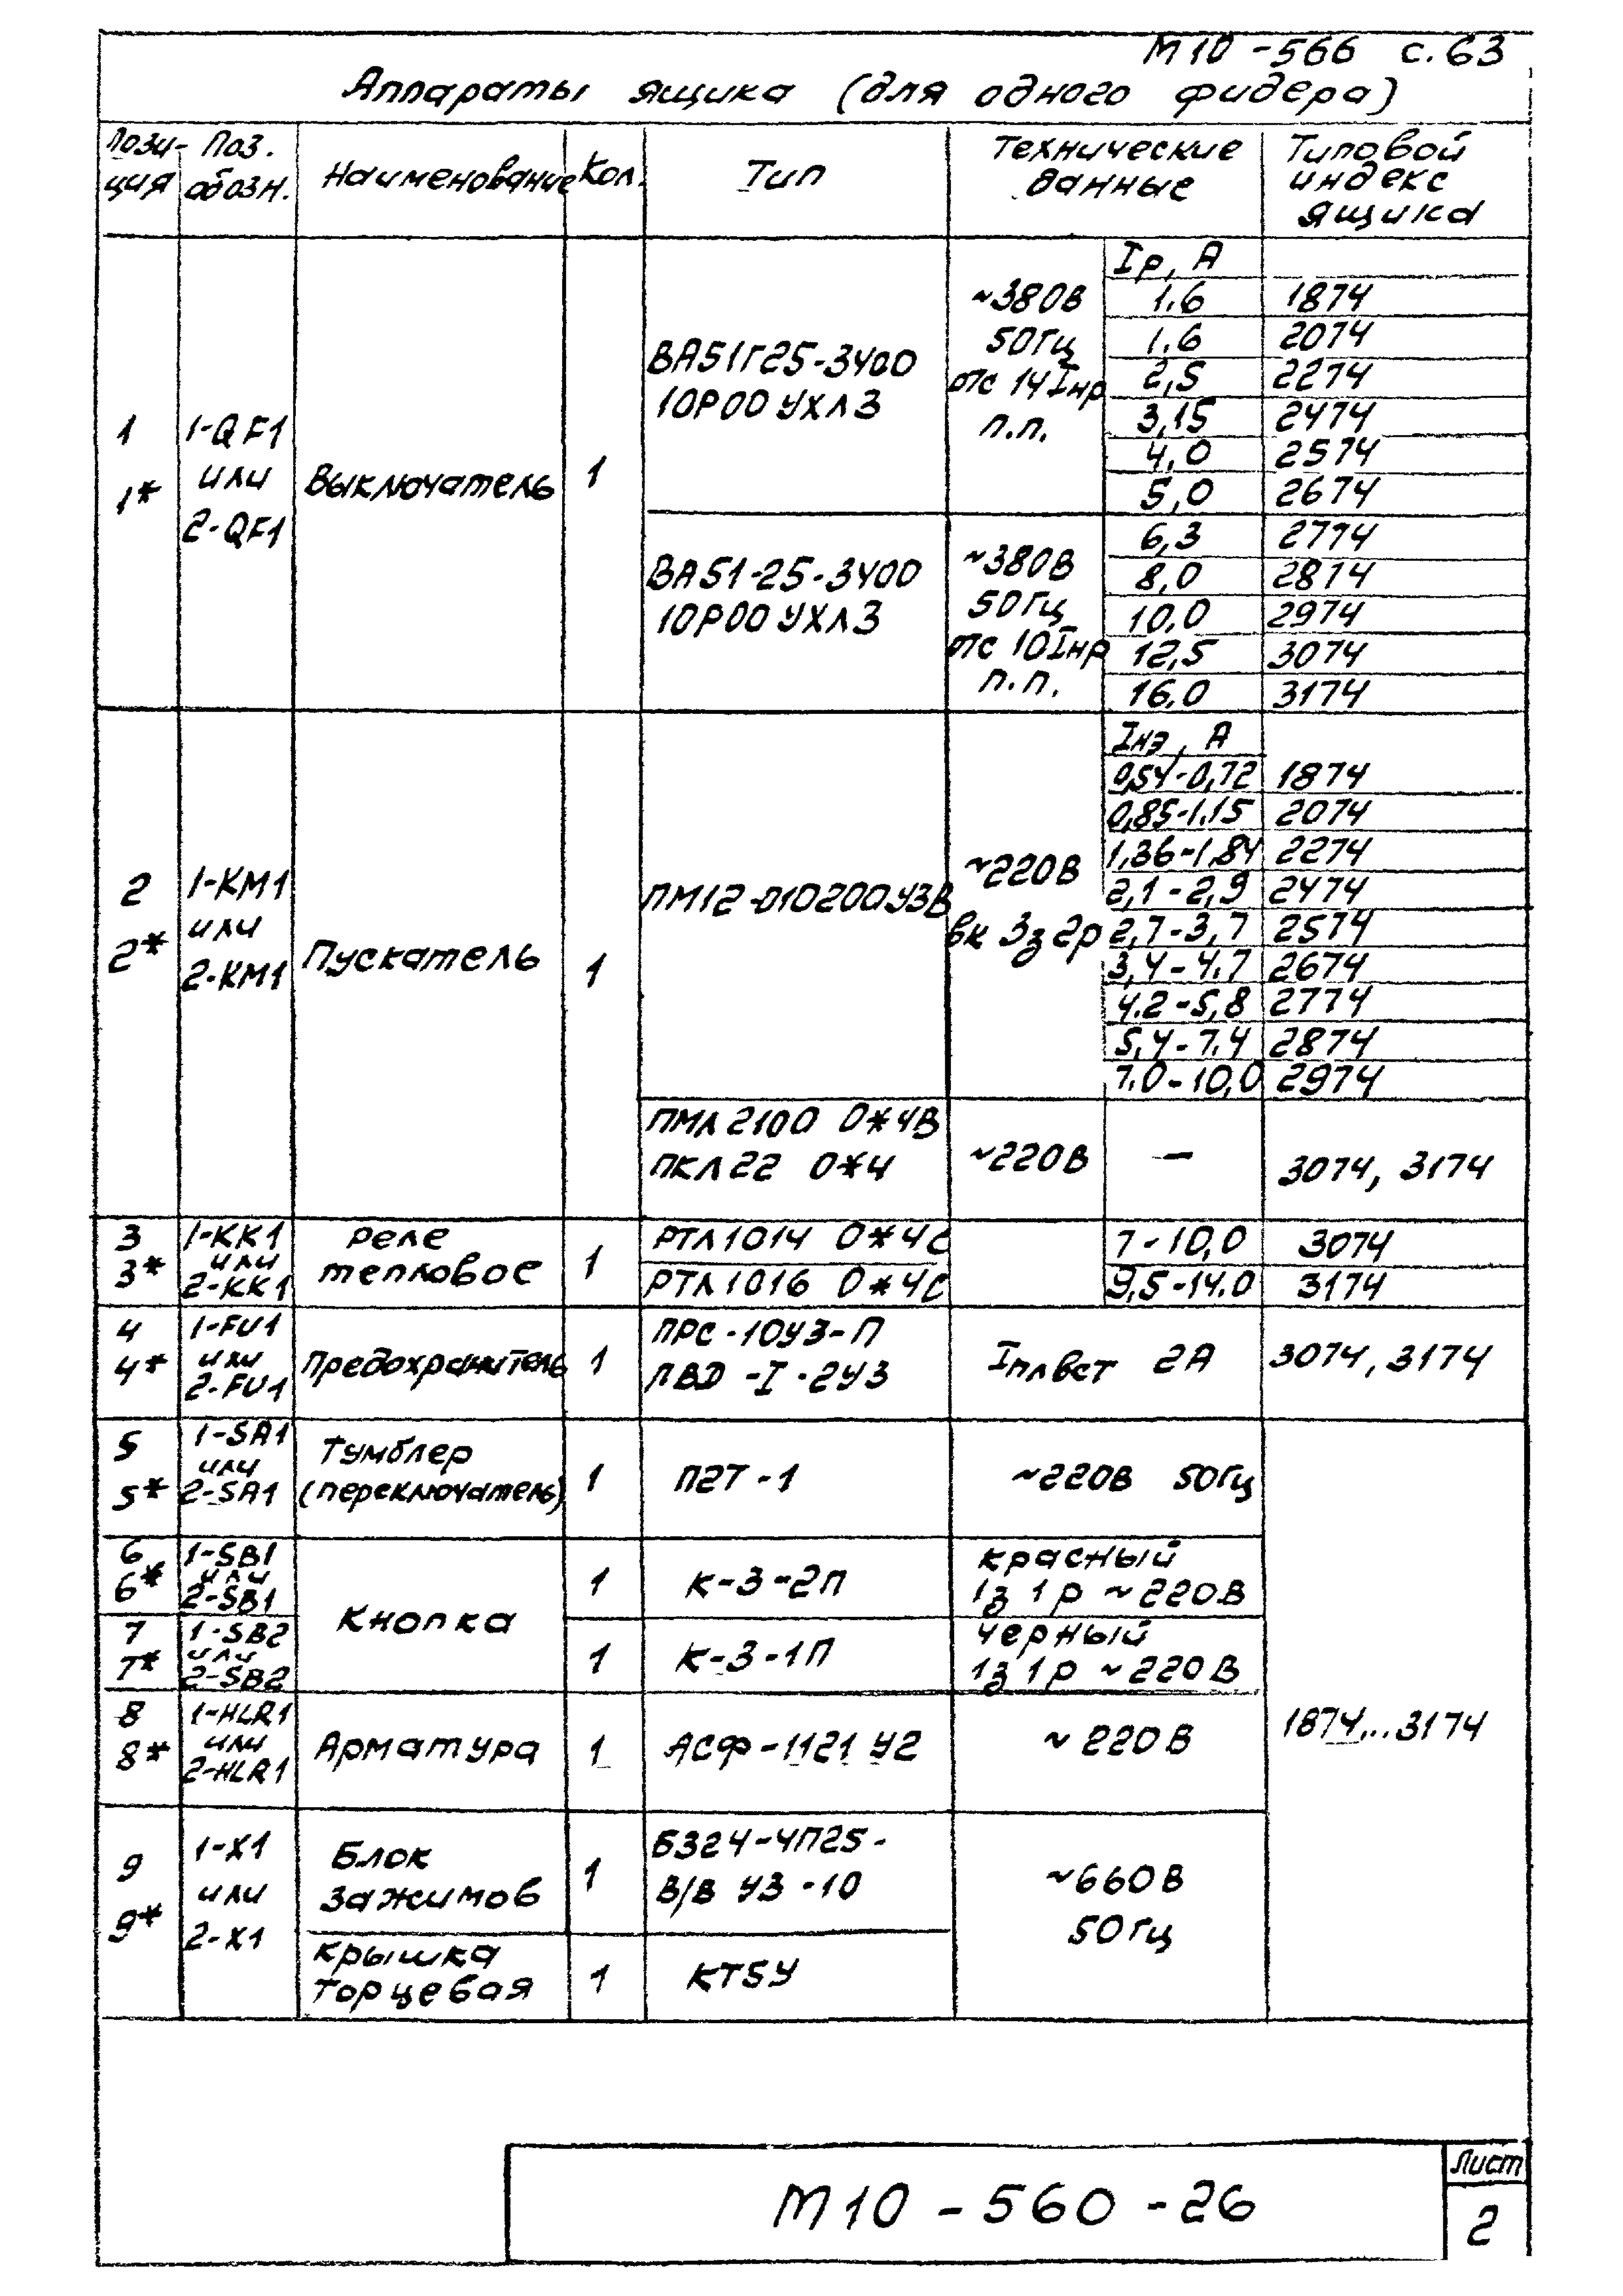 М10-566 с.63
Аппараты ящика (для одного фидера)
Пози-ция Поз. обозн. Наименование Кол. Тип Технические данные Типовой индекс ящика
1
1*
1-QF1
или
2-QF1
Выключатель
1
ВА51Г25-3400
10Р00УХЛ3
~380В
50Гц
отс 14Iнр
п.п.
Iр, А
1.6 1874
1.6 2074
2,5 2274
3,15 2474
4,0 2574
5,0 2674
ВА51-25-3400
10Р00УХЛ3
~380В
50Гц
отс 10Iнр
п.п.
6,3 2774
8,0 2874
10,0 2974
12,5 3074
16,0 3174
2
2*
1-КМ1
или
2-КМ1
Пускатель
1
ПМ12-010200У3В
~220В
вк 3з2р
Iнэ, А
0,54-0,72 1874
0,85-1.15 2074
1,36-1,84 2274
2,1-2,9 2474
2,7-3,7 2574
3,4-4.7 2674
4.2-5,8 2774
5,4-7.4 2874
7.0-10,0 2974
ПМЛ2100 0*4В
ПКЛ22 0*4
~220В
—
3074, 3174
3
3*
1-КК1
или
2-КК1
Реле
тепловое
1
РТЛ1014 0*4С 7-10,0 3074
РТЛ1016 0*4С 9,5-14.0 3174
4
4*
1-FU1
или
2-FU1
Предохранитель
1
ПРС-10У3-П
ПВД-I-2У3
Iпл вст 2А
3074, 3174
5
5*
1-SA1
или
2-SA1
Тумблер
(переключатель)
1
П2Т-1
~220В 50Гц
6
6*
1-SB1
или
2-SB1
Кнопка
1
К-3-2П
красный
1з 1р ~220В
7
7*
1-SB2
или
2-SB2
1
К-3-1П
черный
1з 1р ~220В
8
8*
1-HLR1
или
2-HLR1
Арматура
1
АСФ-1121 У2
~220В
1874...3174
9
9*
1-Х1
или
2-Х1
Блок
зажимов
1
Б324-4П25-
В/В У3-10
~660В
50Гц
крышка
торцевая
1
КТ5У
М10-560-26
Лист
2